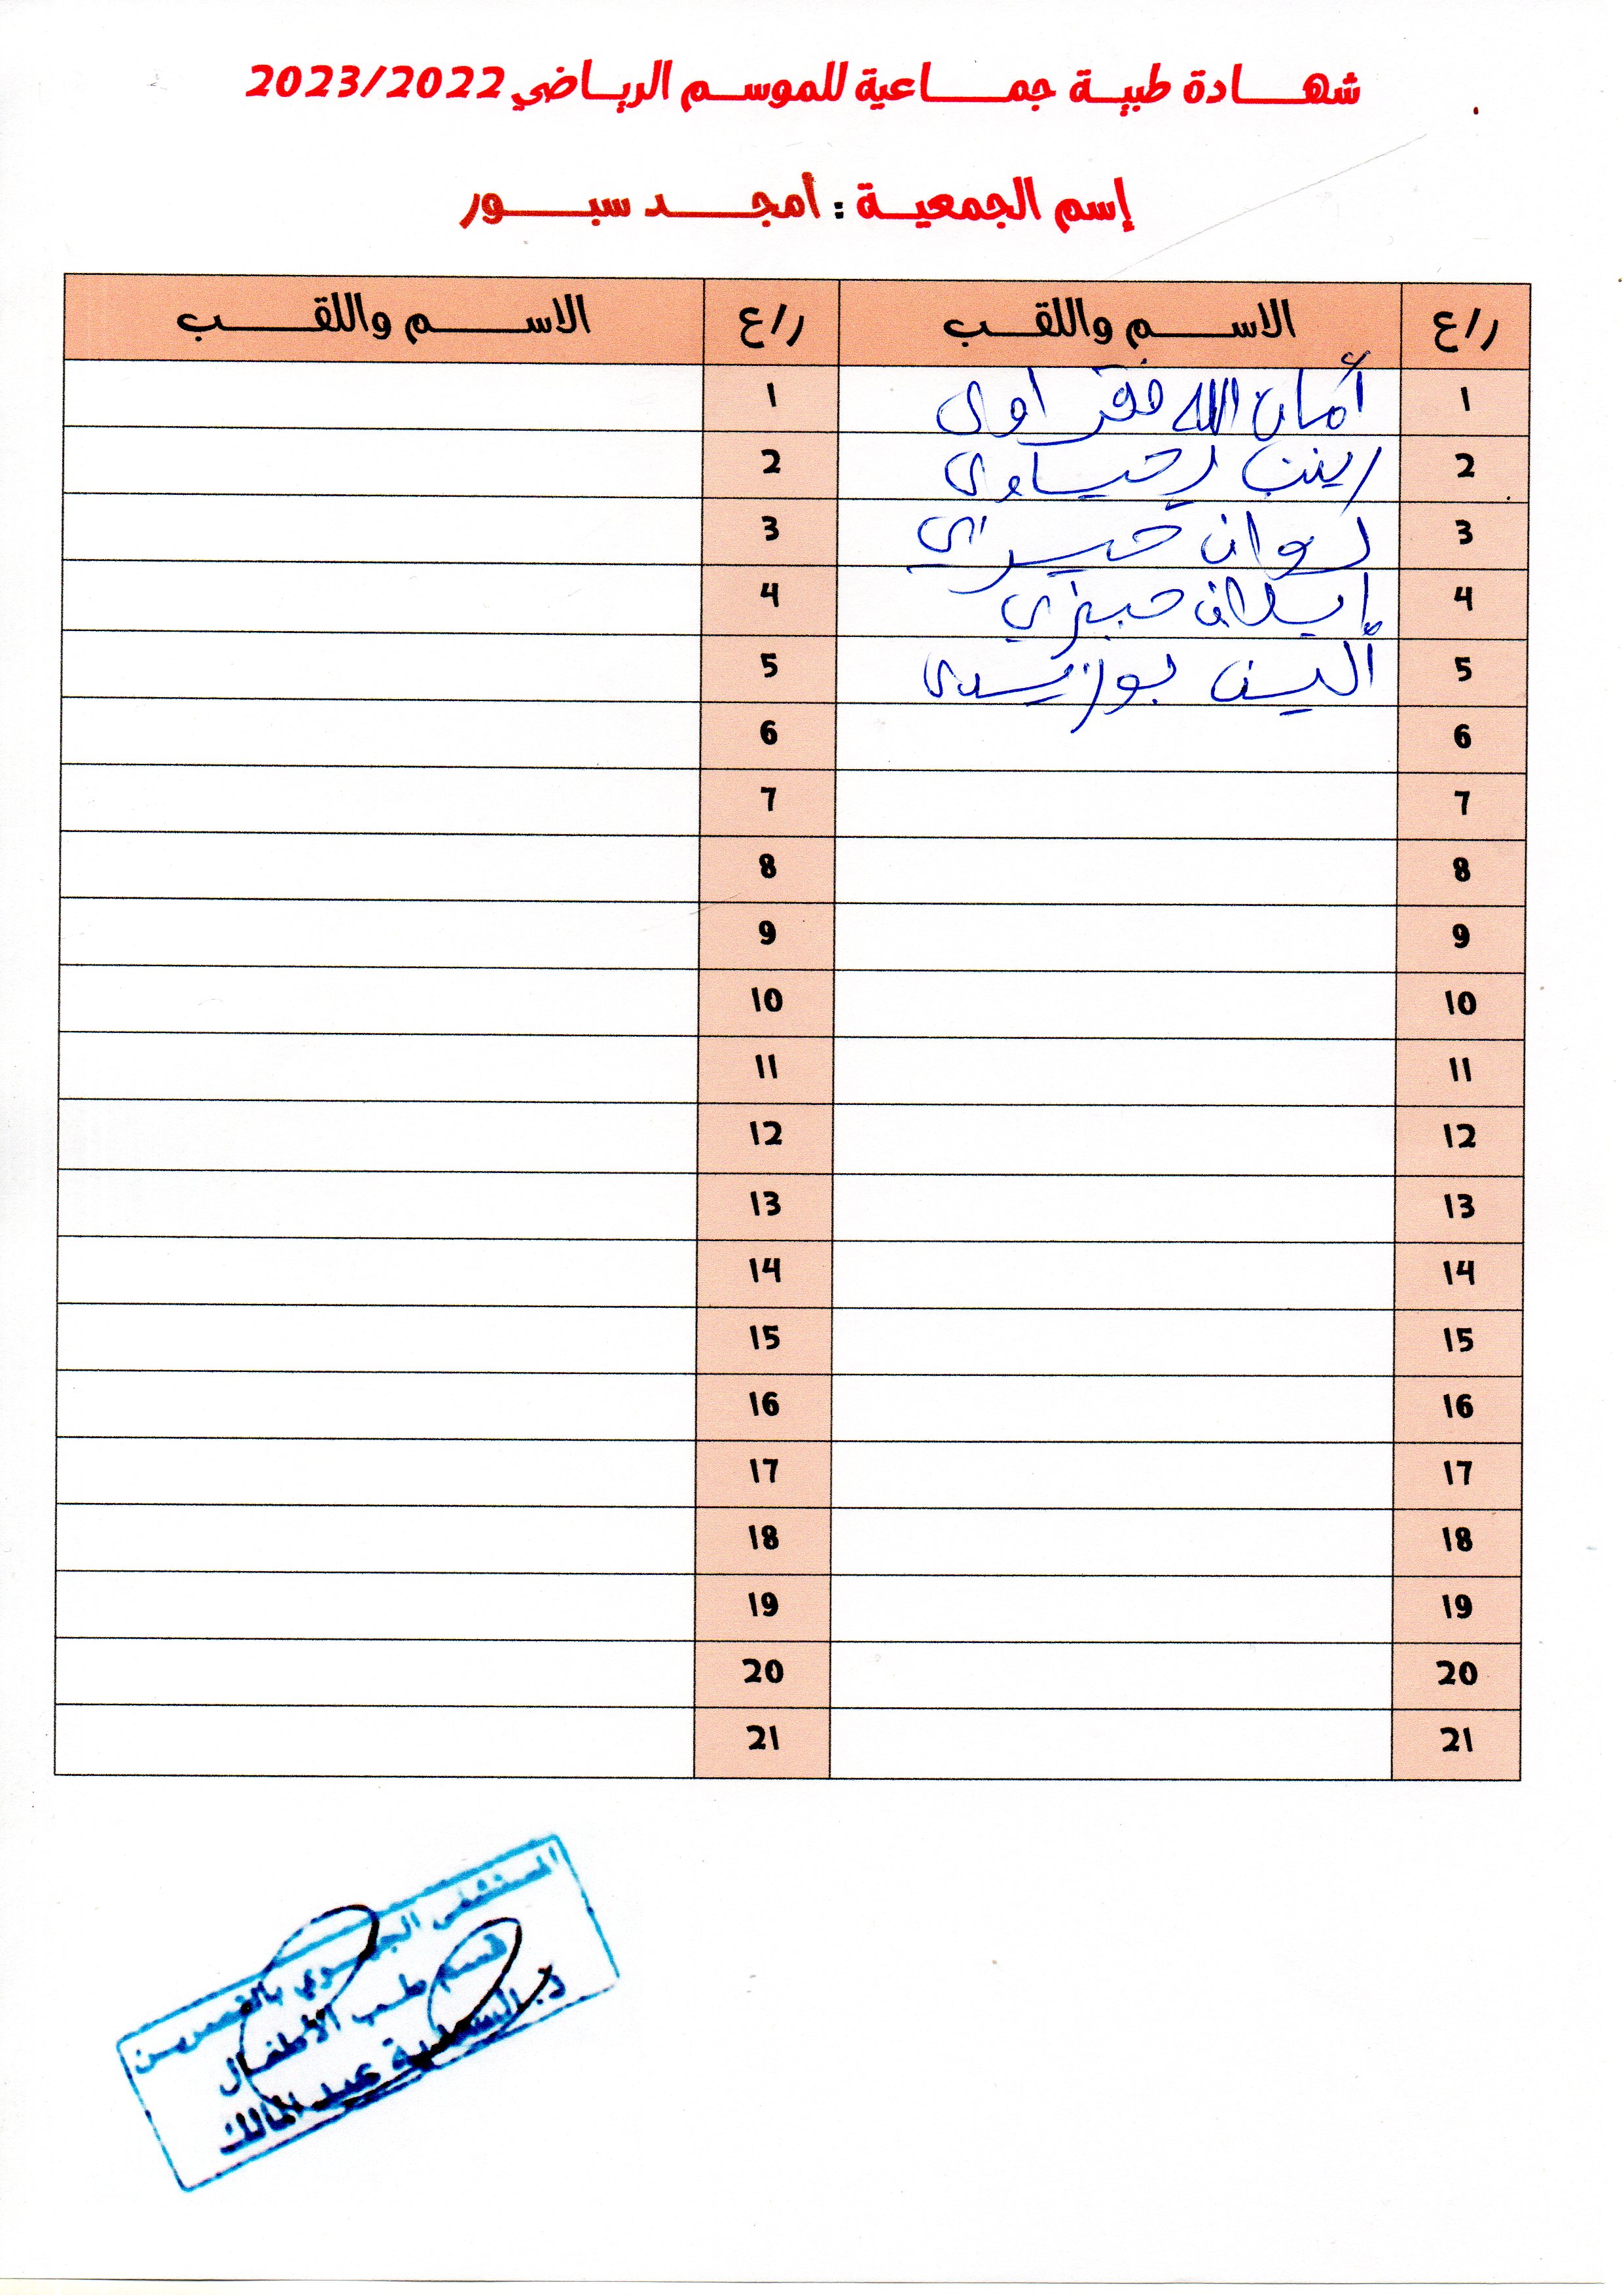 شهادة طبية جماعية للموسم الرياضي 2023/2022
إسم الجمعية : أمجد سبور
ر/ع الاسم واللقب ر/ع الاسم واللقب
1 أمان الله فقراوي 1
2 زينب يحياوي 2
3 3
4 4
5 ألين بوزيدي 5
6 6
7 7
8 8
9 9
10 10
11 11
12 12
13 13
14 14
15 15
16 16
17 17
18 18
19 19
20 20
21 21
المستشفى الجهوي بالقصرين
قسم طب الأطفال
عبد المالك